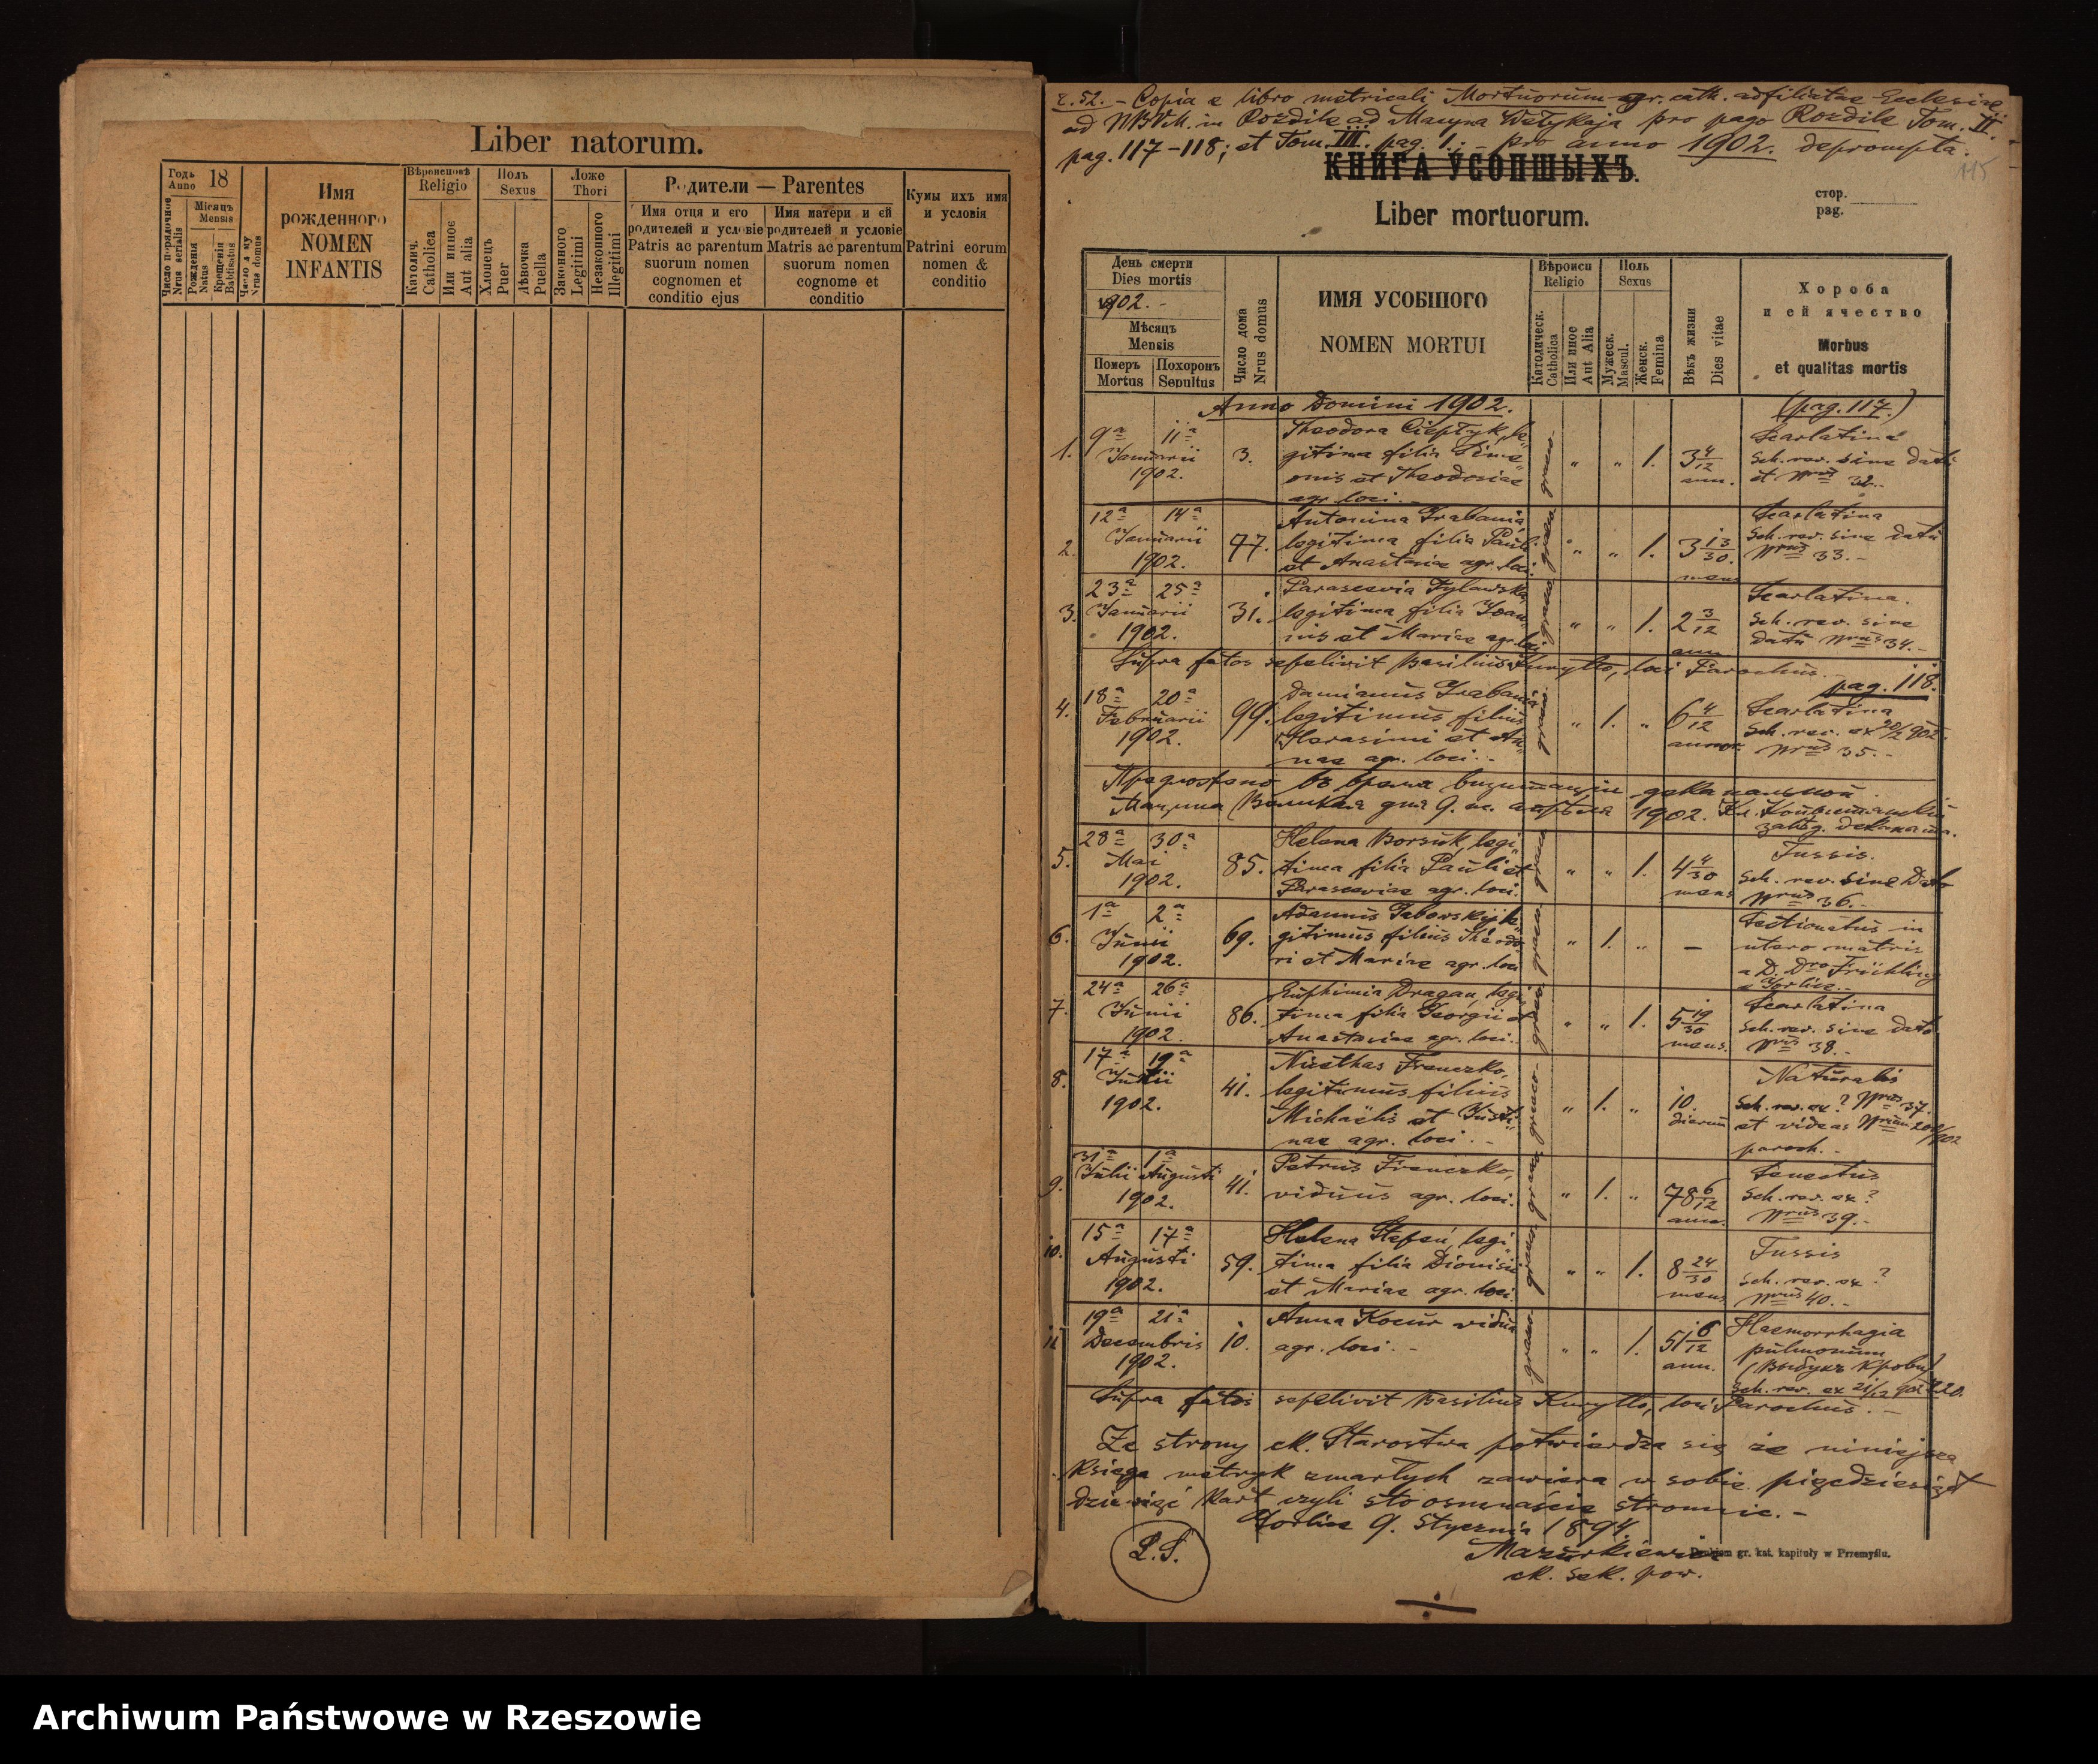 Liber natorum.
Годъ
Anno 18
Мѣсяцъ
Mensis
Число порядочное
Nrus serialis
Рожденія
Natus
Крещенія
Babtisatus
Nrus domus
Имя
рожденного
NOMEN
INFANTIS
Religio
Католич.
Catholica
Или инное
Aut alia
Полъ
Sexus
Хлопецъ
Puer
Дѣвочка
Puella
Ложе
Thori
Законного
Legitimi
Незаконного
Illegitimi
Родители — Parentes
Имя отця и его
родителей и условіе
Patris ac parentum
suorum nomen
cognomen et
conditio ejus
Имя матери и ей
родителей и условіе
Matris ac parentum
suorum nomen
cognome et
conditio
Кумы ихъ имя
и условія
Patrini eorum
nomen &
conditio
r. 52. - Copia e libro metricali Mortuorum gr. cath. adfiliatae Ecclesiae
ad NBVM. in Rozdile ad Macyna Welykaja pro pago Rozdile Tom. II.
pag. 117-118; et Tom. III. pag. 1.; - pro anno 1902. deprompta.
115
КНИГА УСОПШЫХЪ.
Liber mortuorum.
стор.
pag.
День смерти
Dies mortis
1902. -
Мѣсяцъ
Mensis
Померъ
Mortus
Похоронъ
Sepultus
Число дома
Nrus domus
ИМЯ УСОБШОГО
NOMEN MORTUI
Вѣроиси
Religio
Католическ.
Catholica
Или иное
Aut Alia
Поль
Sexus
Мужеск.
Mascul.
Женск.
Femina
Вѣкъ жизни
Dies vitae
Хороба
и ей ячество
Morbus
et qualitas mortis
Anno Domini 1902.
(pag. 117.)
1. 9a 11a
Januarii
1902.
3.
Theodora Ciepłyk, le-
gitima filia Sime-
onis et Theodosiae
agr. loci. -
graeco-
" " 1.
3 4/12
ann.
Scarlatina
Sch. rev. sine dato
et Nrus 32. -
2. 12a 14a
Januarii
1902.
77.
Antonina Grabania,
legitima filia Pauli
et Anastasiae agr. loci.
graeco
" " 1.
3 13/30.
mens.
Scarlatina
Sch. rev. sine datu
Nrus 33. -
3. 23a 25a
Januarii
1902.
31.
Parascevia Fylawska,
legitima filia Joan-
nis et Mariae agr. loci
graeco
" " 1.
2 3/12
ann.
Scarlatina.
Sch. rev. sine
datu Nrus 34. -
Supra fatos sepelivit Basilius Kuryłło, loci Parochus.
pag. 118.
4. 18a 20a
Februarii
1902.
99.
Damianus Grabania
legitimus filius
Harasimi et An-
nae agr. loci. -
graeco
" 1. "
6 4/12
annor.
Scarlatina
Sch. rev. ex 20/2 902
Nrus 35. -
1902.
5. 28a 30a
Mai
1902.
85.
Helena Borsuk, legi-
tima filia Pauli et
Parasceviae agr. loci.
graeco
" " 1.
4 4/30
mens
Tussis.
Sch. rev. sine Dato
Nrus 36. -
6. 1a 2a
Junii
1902.
69.
gitimus filius Theodo-
ri et Mariae agr. loci
graeco.
" 1. "
-
Sectionatus in
utero matris
a D. Dro Frühling
7. 24a 26a
Junii
1902.
86.
Euphimia Dragan, legi-
tima filia Georgii et
Anastasiae agr. loci.
graeco.
" " 1.
5 19/30
mens.
Scarlatina
Sch. rev. sine dato
Nrus 38. -
8. 17a 19a
1902.
41.
legitimus filius
Michaelis et Justi-
nae agr. loci. -
graeco-
" 1. "
10.
dierum
Naturalis
Sch. rev. ex ? Nrus 37.
et videas
paroch. -
9. 31a 1a
Julii Augusti
1902.
41.
Petrus Frenczko,
viduus agr. loci.
graeco
" 1. "
78 6/12
ann.
Senectus
Sch. rev. ex ?
Nrus 39. -
10. 15a 17a
Augusti
1902.
59.
Helena Stefań, legi-
tima filia Dionisii
et Mariae agr. loci.
graeco.
" " 1.
8 24/30
mens
Tussis
Sch. rev. ex ?
Nrus 40. -
11 19a 21a
Decembris
1902.
10.
Anna Kocur vidua
agr. loci. -
graeco-
" " 1.
51 6/12
ann.
Haemorrhagia
pulmonum
(Выбухъ крови)
Sch. rev. ex 21/12 902
Supra fatos sepelivit Basilius Kuryłło, loci Parochus. -
Ze strony ck. Starostwa potwierdza się że niniejsza
Księga metryk zmarłych zawiera w sobie pięćdziesiąt
dziewięć kart czyli sto osmnaście stronnic. -
Gorlice 9. Stycznia 1894.
Mazurkiewicz
ck. sek. pow.
L.S.
Drukiem gr. kat. kapituły w Przemyślu.
Archiwum Państwowe w Rzeszowie